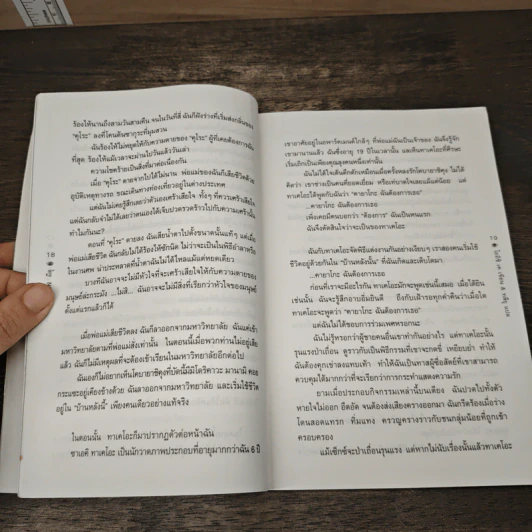 ร้องไห้นานถึงสามวันสามคืน จนในวันที่สี่ ฉันก็ฝังร่างที่เริ่มส่งกลิ่นของ
"คุโระ" ลงที่โคนต้นซากุระที่มุมสวน
ฉันร้องไห้ไม่หยุดให้กับความตายของ "คุโระ" ผู้ที่เคยต้องการฉัน
ที่สุด ร้องไห้แม้เวลาจะผ่านไปวันแล้ววันเล่า
ความโชคร้ายเป็นสิ่งที่มาต่อเนื่องกัน
เมื่อ "คุโระ" ตายจากไปได้ไม่นาน พ่อแม่ของฉันก็เสียชีวิตด้วย
อุบัติเหตุทางรถ ขณะเดินทางท่องเที่ยวอยู่ในต่างประเทศ
แต่ฉันไม่เคยรู้สึกเลยว่าตัวเองเศร้าเสียใจ ทั้งๆ ที่ควรเศร้าเสียใจ
แต่ฉันกลับจำไม่ได้เลยว่าตนเองได้เจ็บปวดรวดร้าวไปกับความเศร้านั้น
ทำไมกันนะ?
ตอนที่ "คุโระ" ตายลง ฉันเสียน้ำตาไปตั้งขนาดนั้นแท้ๆ แต่เมื่อ
พ่อแม่เสียชีวิต ฉันกลับไม่ได้ร้องไห้ซักนิด ไม่ว่าจะเป็นในพิธีอำลาหรือ
ในงานศพ น่าประหลาดที่น้ำตาฉันไม่ได้ไหลแม้แต่หยดเดียว
บางทีฉันอาจจะไม่มีหัวใจที่จะเศร้าเสียใจให้กับความตายของ
มนุษย์ล่ะกระมัง ...ไม่สิ... ฉันอาจจะไม่มีสิ่งที่เรียกว่าหัวใจของมนุษย์
ตั้งแต่แรกแล้วก็ได้
เมื่อพ่อแม่เสียชีวิตลง ฉันก็ลาออกจากมหาวิทยาลัย ฉันแค่เข้า
มหาวิทยาลัยตามที่พ่อแม่สั่งเท่านั้น ในตอนนี้เมื่อพวกท่านไม่อยู่เสีย
แล้ว ฉันก็ไม่มีเหตุผลที่จะต้องเข้าเรียนในมหาวิทยาลัยอีกต่อไป
กระแซะอยู่เคียงข้างด้วย ฉันลาออกจากมหาวิทยาลัย และเริ่มใช้ชีวิต
อยู่ใน "บ้านหลังนี้" เพียงคนเดียวอย่างแท้จริง
ในตอนนั้น ทาเคโอะก็มาปรากฏตัวต่อหน้าฉัน
ซาเอคิ ทาเคโอะ เป็นนักวาดภาพประกอบที่อายุมากกว่าฉัน 6 ปี
18
เขาอาศัยอยู่ในอพาร์ตเมนต์ใกล้ๆ ที่พ่อแม่ฉันเป็นเจ้าของ ฉันจึงรู้จัก
เขามานานแล้ว ฉันซึ่งอายุ 19 ปีในเวลานั้น และเห็นทาเคโอะที่ศีรษะ
เริ่มเถิกเป็นเพียงคุณลุงคนหนึ่งเท่านั้น
คิดว่า เขาช่างเป็นคนที่ยอดเยี่ยม หรือเท่บาดใจเลยแม้แต่น้อย แต่
ทาเคโอะได้พูดกับฉันว่า "คายาโกะ ฉันต้องการเธอ"
...คายาโกะ ฉันต้องการเธอ
เพิ่งเคยมีคนบอกว่า "ต้องการ" ฉันเป็นหนแรก
ฉันจึงตัดสินใจว่าจะเป็นของทาเคโอะ
ฉันกับทาเคโอะจัดพิธีแต่งงานกันอย่างเงียบๆ เราสองคนเริ่มใช้
ชีวิตอยู่ด้วยกันใน "บ้านหลังนั้น" ที่ฉันเกิดและเติบโตมา
...คายาโกะ ฉันต้องการเธอ
ก่อนที่เราจะมีอะไรกัน ทาเคโอะมักจะพูดเช่นนี้เสมอ เมื่อได้ยิน
เช่นนั้น ฉันจะรู้สึกอาบอิ่มยินดี ถึงกับเฝ้ารอทุกค่ำคืนว่าเมื่อใด
ทาเคโอะจะพูดว่า "คายาโกะ ฉันต้องการเธอ"
แต่ฉันไม่ได้ชอบการร่วมเพศหรอกนะ
ฉันไม่รู้หรอกว่าผู้ชายคนอื่นเขาทำกันอย่างไร แต่ทาเคโอะนั้น
รุนแรงป่าเถื่อน ดูราวกับเป็นพิธีกรรมที่เขาจะกดขี่ เหยียบย่ำ ทำให้
ฉันต้องคุกเข่าลงแทบเท้า ทำให้ฉันเป็นทาสผู้ซื่อสัตย์ที่เขาสามารถ
ควบคุมได้มากกว่าที่จะเรียกว่าการกระทำแสดงความรัก
ยามเมื่อประกอบกิจกรรมเหล่านี้บนเตียง ฉันปวดไปทั้งตัว
หายใจไม่ออก อึดอัด จนต้องส่งเสียงครางออกมา ฉันกรีดร้องเมื่อร่าง
โดนสอดแทรก ทิ่มแทง คร่ำครวญราวกับชนกลุ่มน้อยที่ถูกเข้า
ครอบครอง
แม้เซ็กซ์จะป่าเถื่อนรุนแรง แต่หากไม่นับเรื่องนั้นแล้วทาเคโอะ